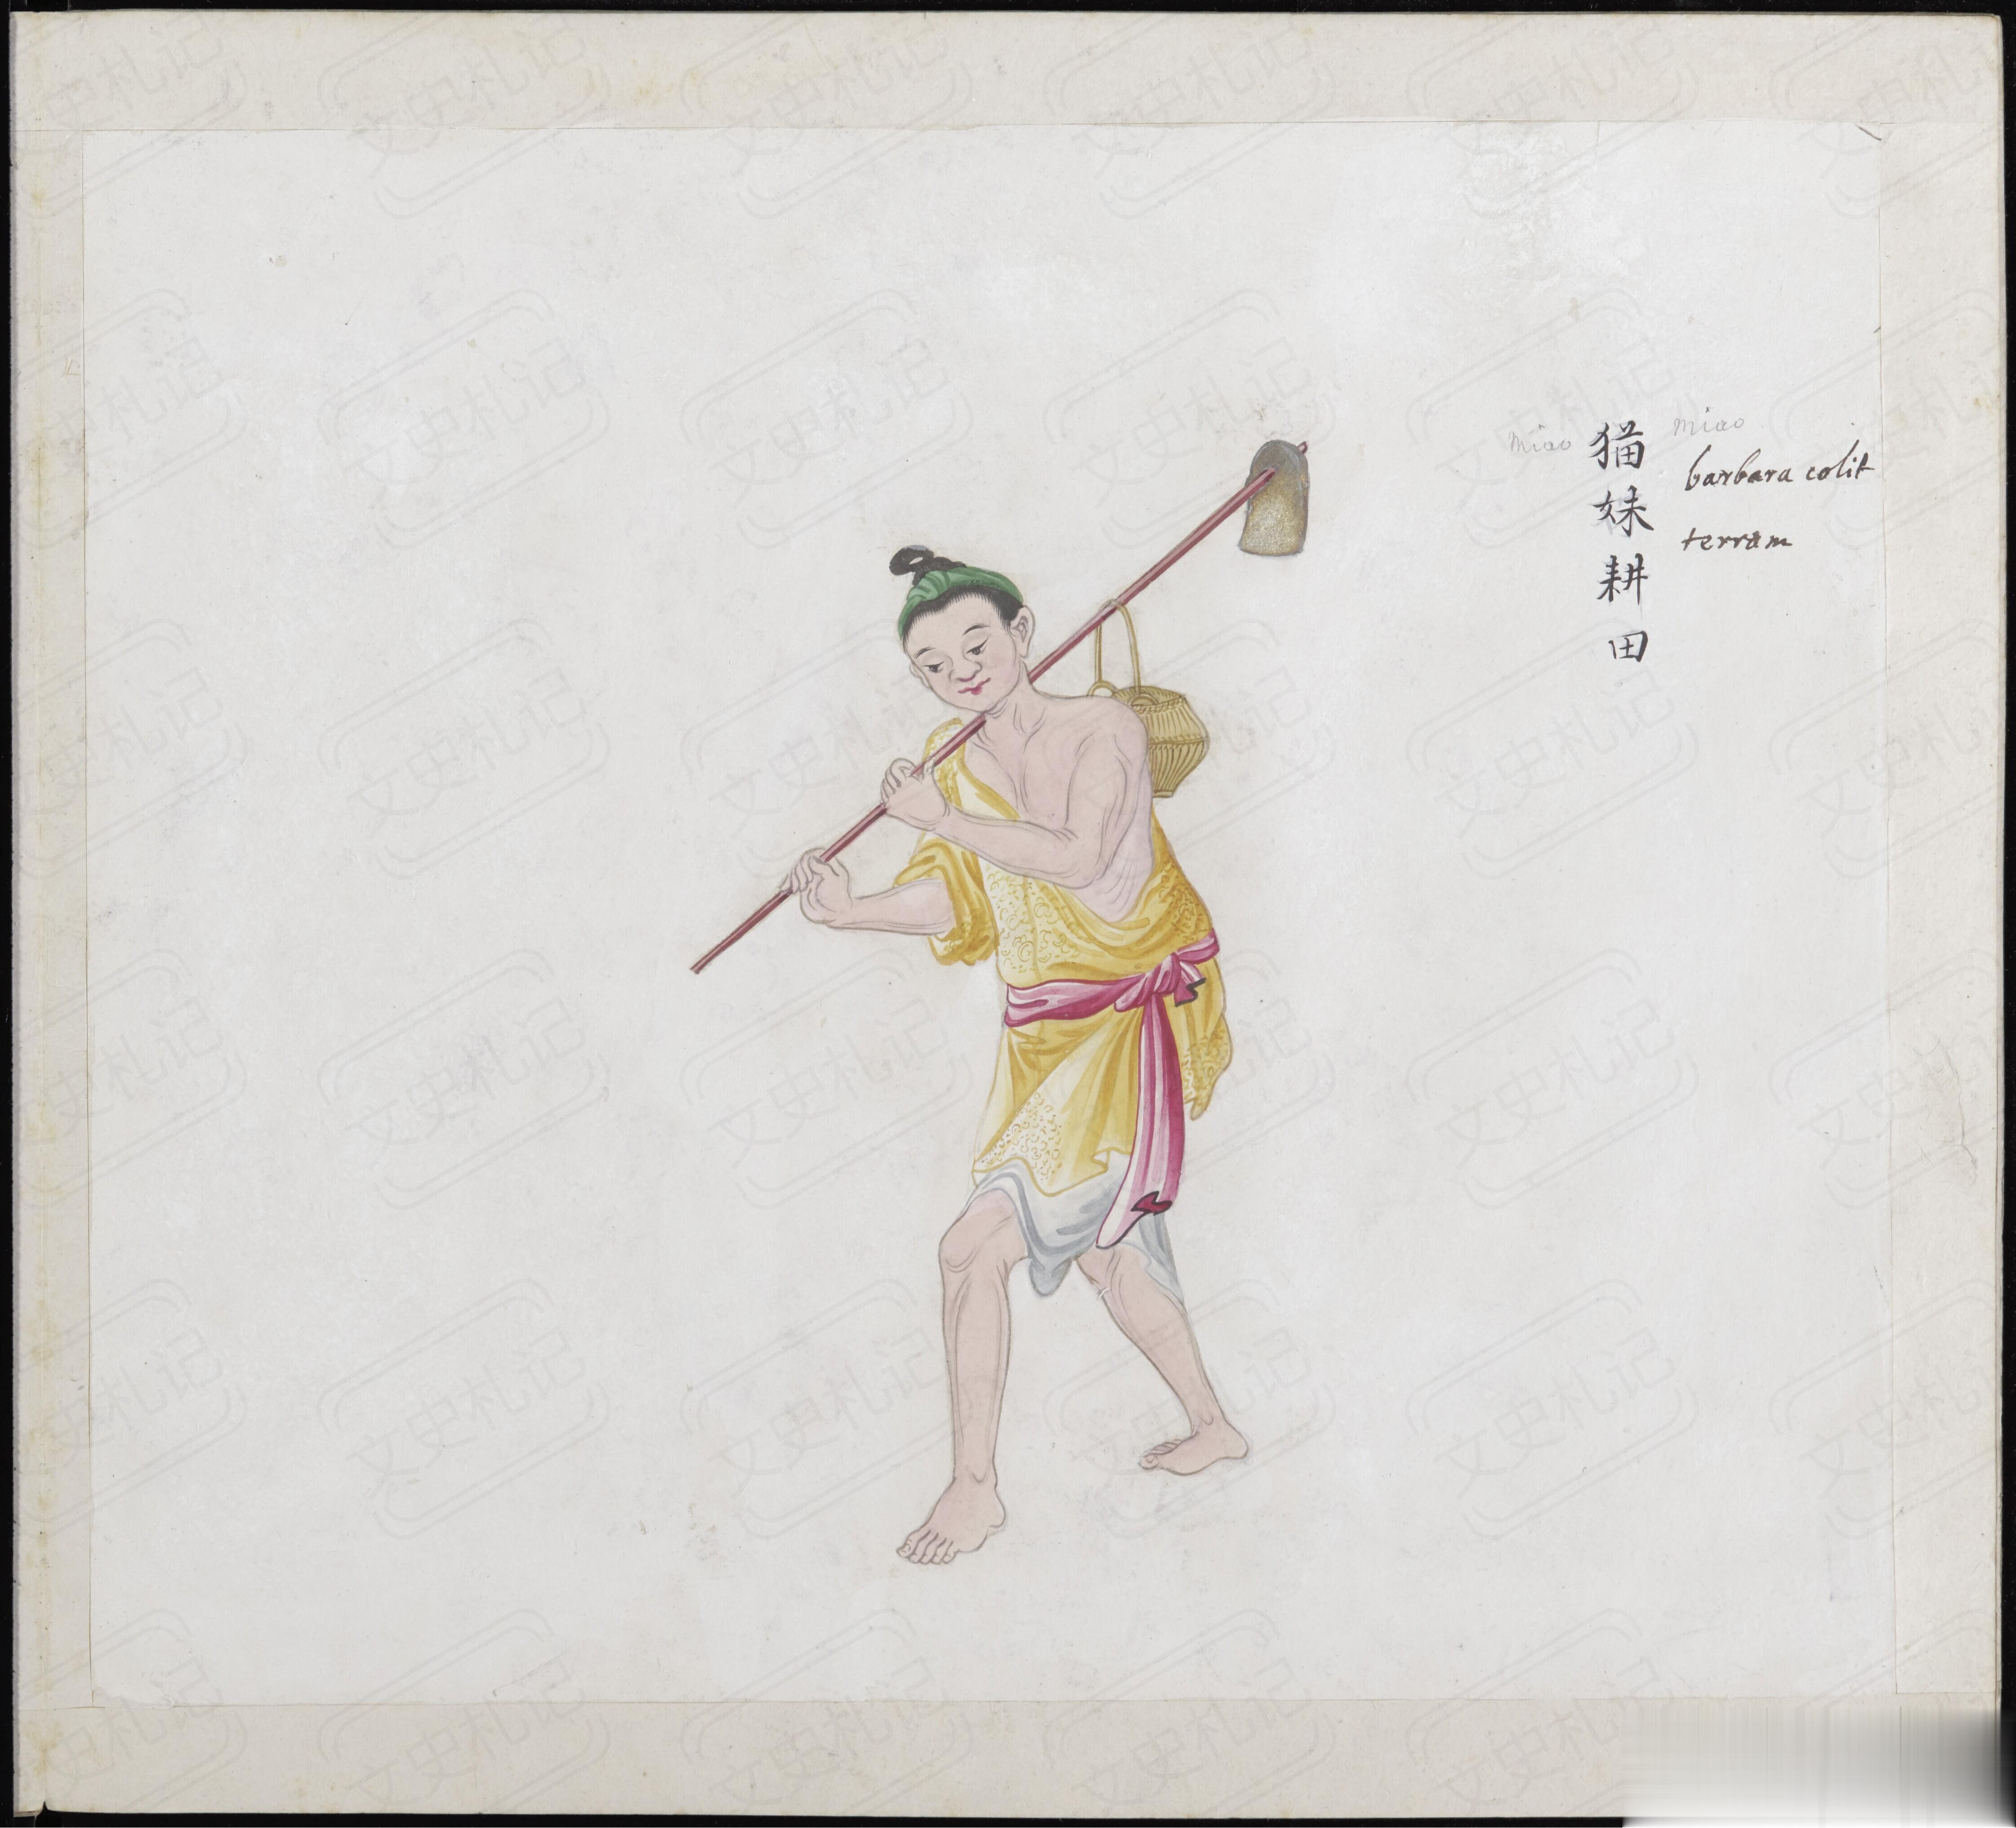 猫妹耕田
miao
miao
barbara colit
terram
文史札记